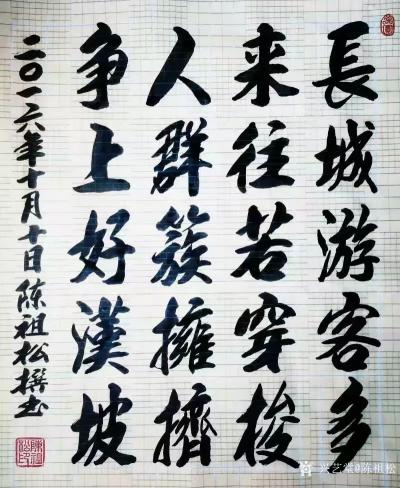 長城游客多
来往若穿梭
人群簇擁擠
争上好漢坡
二〇一六年十月十日陈祖松撰书
兴艺堂@陈祖松